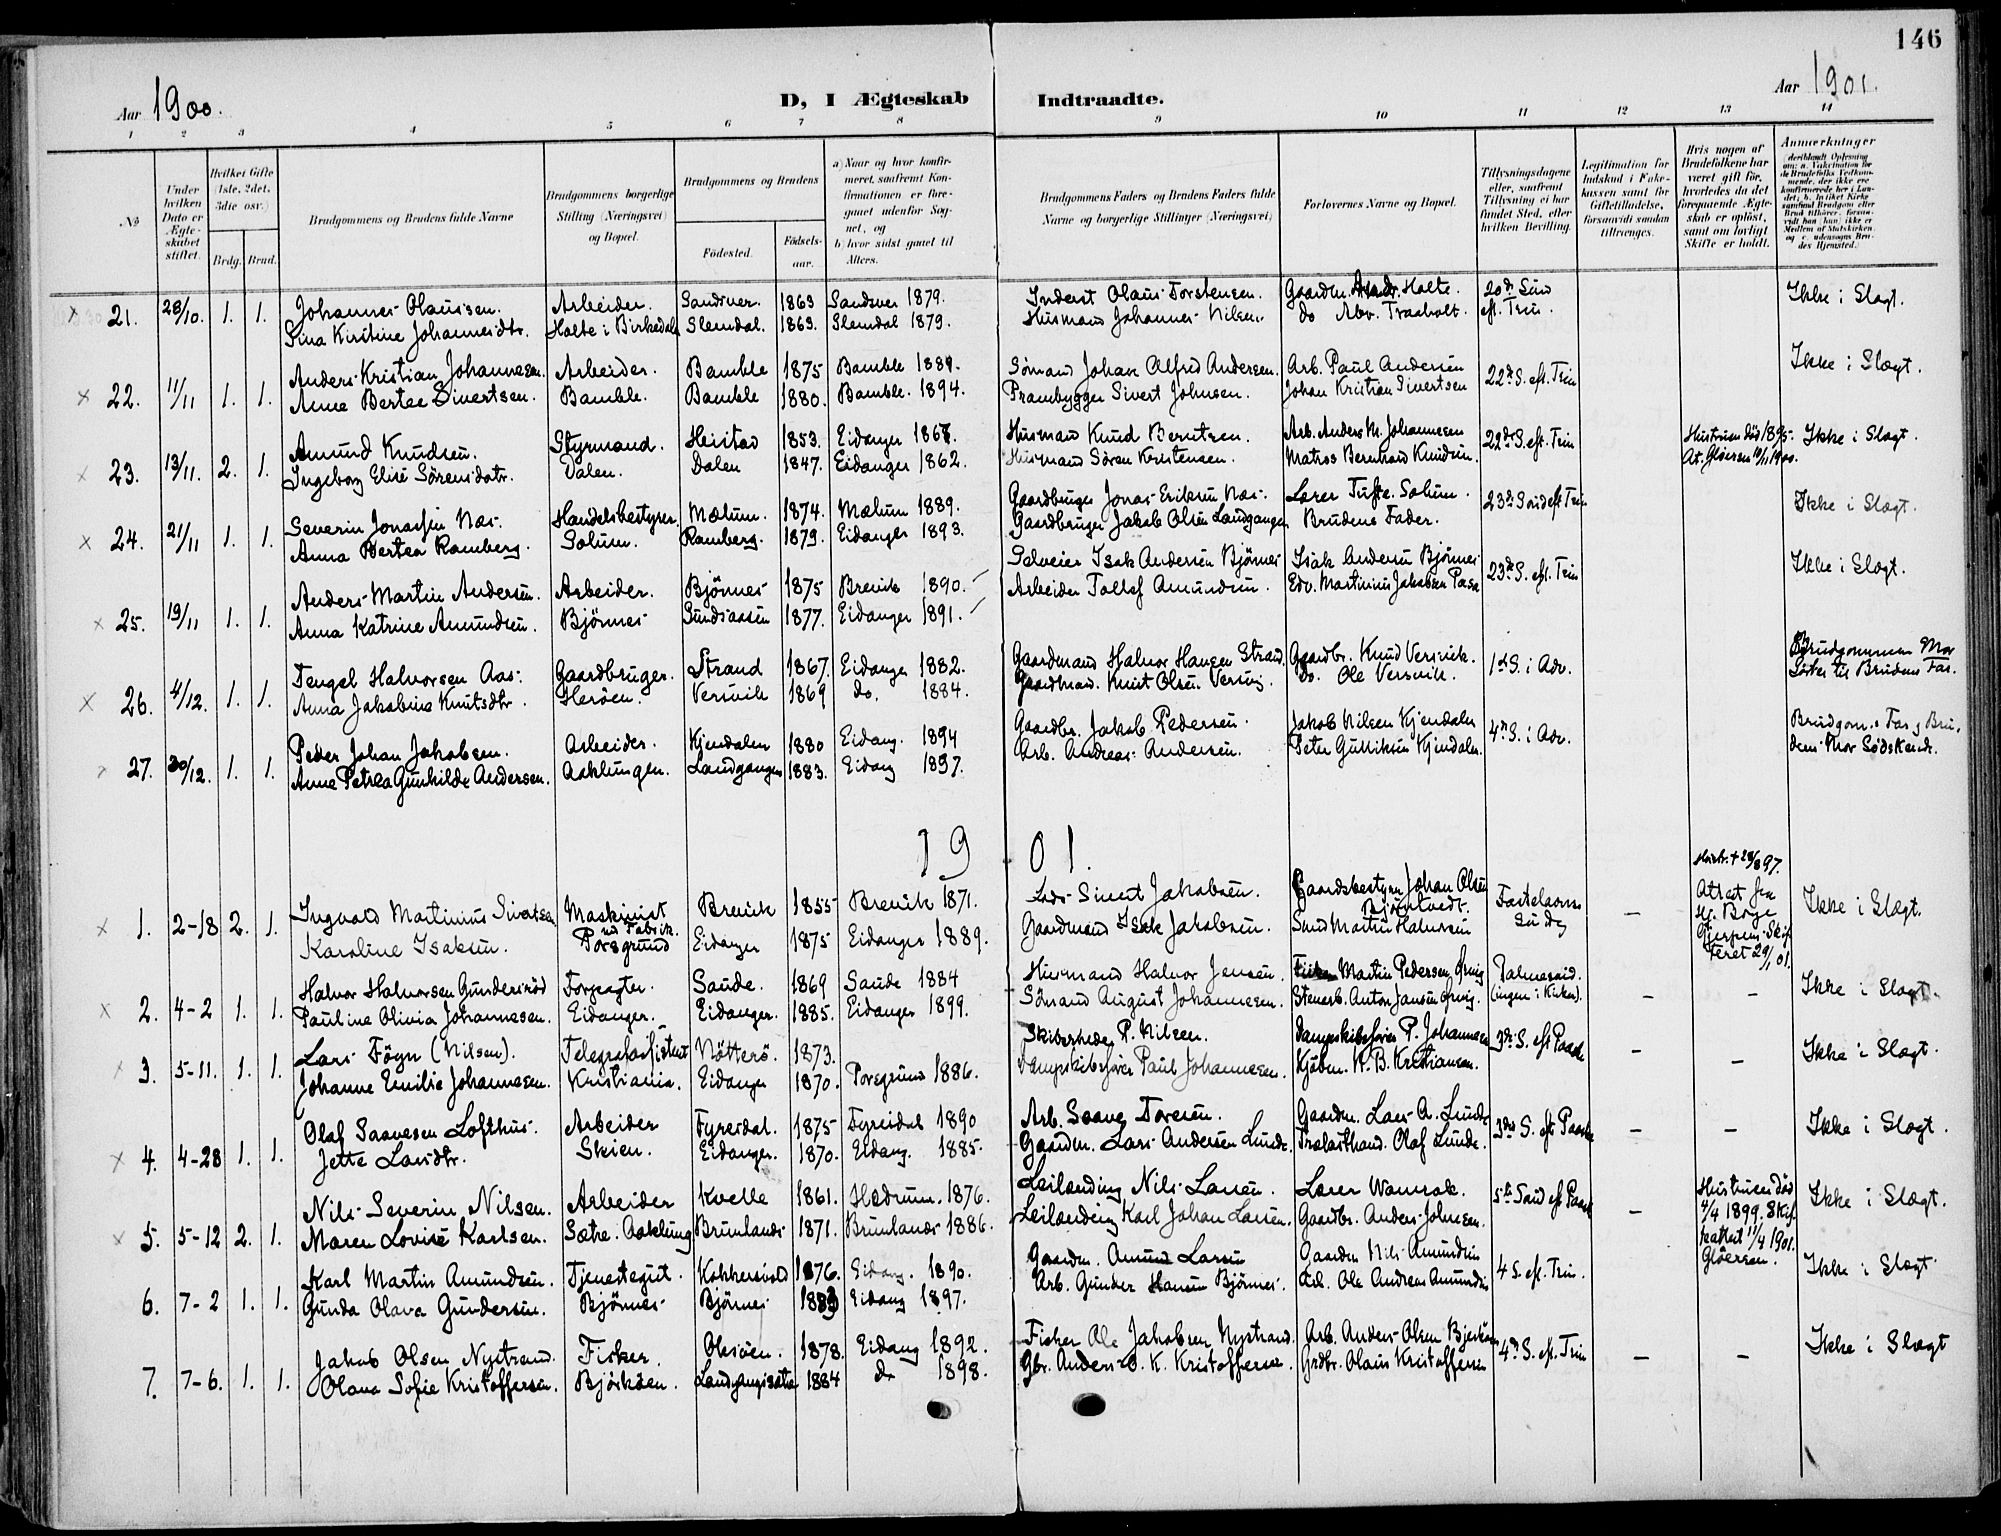 146
Aar 1900.
D, I Ægteskab Indtraadte.
Aar 1901.
1 2 3 4 5 6 7 8 9 10 11 12 13 14
No.
Under hvilken Dato er Ægteskabet stiftet.
Hvilket Gifte (1ste, 2det, 3die osv.)
Brdg. Brud.
Brudgommens og Brudens fulde Navne
Brudgommens borgerlige Stilling (Næringsvei) og Bopæl.
Brudgommens og Brudens
Fødested. Fødselsaar.
a) Naar og hvor konfirmeret, saafremt Konfirmationen er foregaaet udenfor Sognet, og
b) hvor sidst gaaet til Alters.
Brudgommens Faders og Brudens Faders fulde Navne og borgerlige Stillinger (Næringsvei)
Forlovernes Navne og Bopæl.
Tillysningsdagene eller, saafremt Tillysning ei har fundet Sted, efter hvilken Bevilling.
Legitimation for Indskud i Enkekassen samt for Giftetilladelse, forsaavidt saadan tiltrænges.
Hvis nogen af Brudefolkene har været gift før, hvorledes da det foregaaende Ægteskab er opløst, samt om lovligt Skifte er holdt.
Anmærkninger
21. 28/10. 1. 1. Johannes Olausen. Arbeider. Sandsver. 1863 Sandsver 1879. Inderst Olaus Torstensen. Gaardbr. Halte. 20de Sønd Ikke i Slægt.
Sina Kirstine Johannesdtr. Halte i Birkedal Slemdal. 1863. Slemdal 1879. Husmand Johannes Nilsen do Abr. Traaholt. eft. Trin.
22. 11/11 1. 1. Anders Kristian Johannesen. Arbeider. Bamble 1875 Bamble 1889. Sømand Johan Alfred Andersen. Arb. Paul Andersen 22de S. eft. Trin Ikke i Slægt.
Anne Bertea Sivertsen. Bamble. Bamble 1880. Bamble. 1894. Prambygger Sivert Johnsen. Johan Kristian Sivertsen
23. 13/11. 2. 1. Amund Knudsen. Styrmand. Heistad 1853. Eidanger 1867. Husmand Knud Berntsen. Arb. Anders M. Johannesen 22de S. eft. Trin Hustruen død 1895. Ikke i Slægt.
Ingeborg Elise Sørensdatr. Dalen. Dalen 1847. Eidanger 1862. Husmand Søren Kristensen. Matros Bernhard Knudsen. At. Gløersen 10/11 1900.
24. 21/11 1. 1. Severin Jonassen Næs. Handelsbestyrer Mælum. 1874. Mælum 1889. Gaardbruger Jonas Eriksen Næs. Lærer Tufte. Solum. 23de S. eft Trin Ikke i Slægt.
Anna Bertea Ramberg. Solum. Ramberg. 1879. Eidanger 1893. Gaardbruger Jakob Olsen Landgangen Brudens Fader.
25. 19/11 1. 1. Anders Martin Andersen. Arbeider. Bjørnes 1875 Brevik 1890. Selveier Isak Andersen Bjørnes Isak Andersen Bjørnes 23de S. eft. Trin Ikke i Slægt.
Anna Katrine Amundsen. Bjørnes Sundsaasen 1877. Eidanger 1891. Arbeider Tollef Amundsen. Edv. Martinius Jakobsen
26. 4/12. 1. 1. Tengel Halvorsen Aas. Gaardbruger. Strand 1867. Eidanger 1882. Gaardmand Halvor Hansen Strand. Gaardbr. Knud Versvik. 1ste S. i Adv. Brudgommens Mor
Anna Jakobine Knutsdtr. Herøen. Versvik 1869 do. 1884. Gaardmand. Knut Olsen Versvig. do. Ole Versvik. Søster til Brudens Far.
27. 30/12. 1. 1. Peder Johan Jakobsen. Arbeider. Kjendalen 1880 Eidang. 1894 Gaardbr. Jakob Pedersen. Jakob Nilsen Kjendalen 4de S. i Adv. Brudgom.s Far, Bru-
Anne Petrea Gunhilde Andersen. Aaklungen. Landgangen 1883. Eidang 1897. Arb. Andreas Andersen. Peter Gulliksen Kjendalen. dens Mor Sødskende.
1901.
1. 2-18 2. 1. Ingvald Martinius Sivertsen Maskinist ved Fabrik. Brevik 1855 Brevik 1871. Lods Sivert Jakobsen. Gaardsbestyrer Johan Olsen Bjørntvedt. Fastelavns Hustr. + 28/8 97. Attest fra Ikke i Slægt.
Karoline Isaksen. Porsgrund Eidanger 1875 Eidanger 1889. Gaardmand Isak Jakobsen. Smed Martin Halvorsen Søndag — Gjerpens Skifteret 29/1 01.
2. 4-2 1. 1. Halvor Halvorsen Gundersrød Forpagter. Saude. 1869 Saude 1884 Husmand Halvor Jensen. Martin Pedersen Ørvig Palmesønd. — — Ikke i Slægt.
Pauline Olivia Johannesen. Eidanger. Eidanger. 1885. Eidanger 1899. Sømand August Johannesen. Stenarb. Anton Jansen Ørvig. (ingen i Kirken).
3. 5-11. 1. 1. Lars Føyn (Nilsen). Telegrafassistent Nøtterø. 1873. Skibsreder P. Nilsen. Dampskibsfører P. Johannesen 3die S. eft Paaske — — Ikke i Slægt.
Johanne Emilie Johannesen. Kristiania. Eidanger 1870. Porsgrund 1886. Dampskibsfører Paul Johannesen. Kjøbm. K. B. Kristiansen.
4. 4-28 1. 1. Olaf Saavesen Lofthus. Arbeider Fyresdal. 1875 Fyresdal 1890 Arb. Saave Toresen. Gaardm. Lars A. Lunde 3die S. eft Paaske — — Ikke i Slægt.
Jette Larsdtr. Skien. Eidanger. 1870. Eidang. 1885. Gaardm. Lars Andersen Lunde. Trælasthand. Olaf Lunde.
5. 5-12 2. 1. Nils Severin Nilsen. Arbeider Kvelle 1861. Hedrum. 1876. Leilænding Nils Larsen. Lærer Wamraak. 5te Sønd eft Paaske — Hustruen død 4/4 1899. Skifteattest 11/4 1901. Gløersen. Ikke i Slægt.
Maren Lovise Karlsen. Sætre. Aaklung Brunlanes 1871. Brunlanes 1886. Leilænding Karl Johan Larsen. Gaardbr. Anders Johnsen.
6. 7-2 1. 1. Karl Martin Amundsen. Tjenestegut. Kokkersvold 1876. Eidang. 1890. Gaardm. Amund Larsen Gaardm Nils Amundsen 4 S. eft. Trin. Ikke i Slægt
Gunda Olava Gundersen. Bjørnes Bjørnes 1883 Eidang 1897. Arb. Gunder Hansen Bjørnes. Ole Andreas Amundsen
7. 7-6. 1. 1. Jakob Olsen Nystrand. Fisker. Olesøen. 1878. Eidang 1892. Fisker Ole Jakobsen Nystrand. Arb. Anders Olsen Bjerkøen 4de S. eft. Trin — — Ikke i Slægt
Olava Sofie Kristoffersen. Bjørkøen. Landgangssæter 1884 do 1898. Gbr. Anders O. K. Kristoffersen. Grdbr. Olaus Kristoffersen